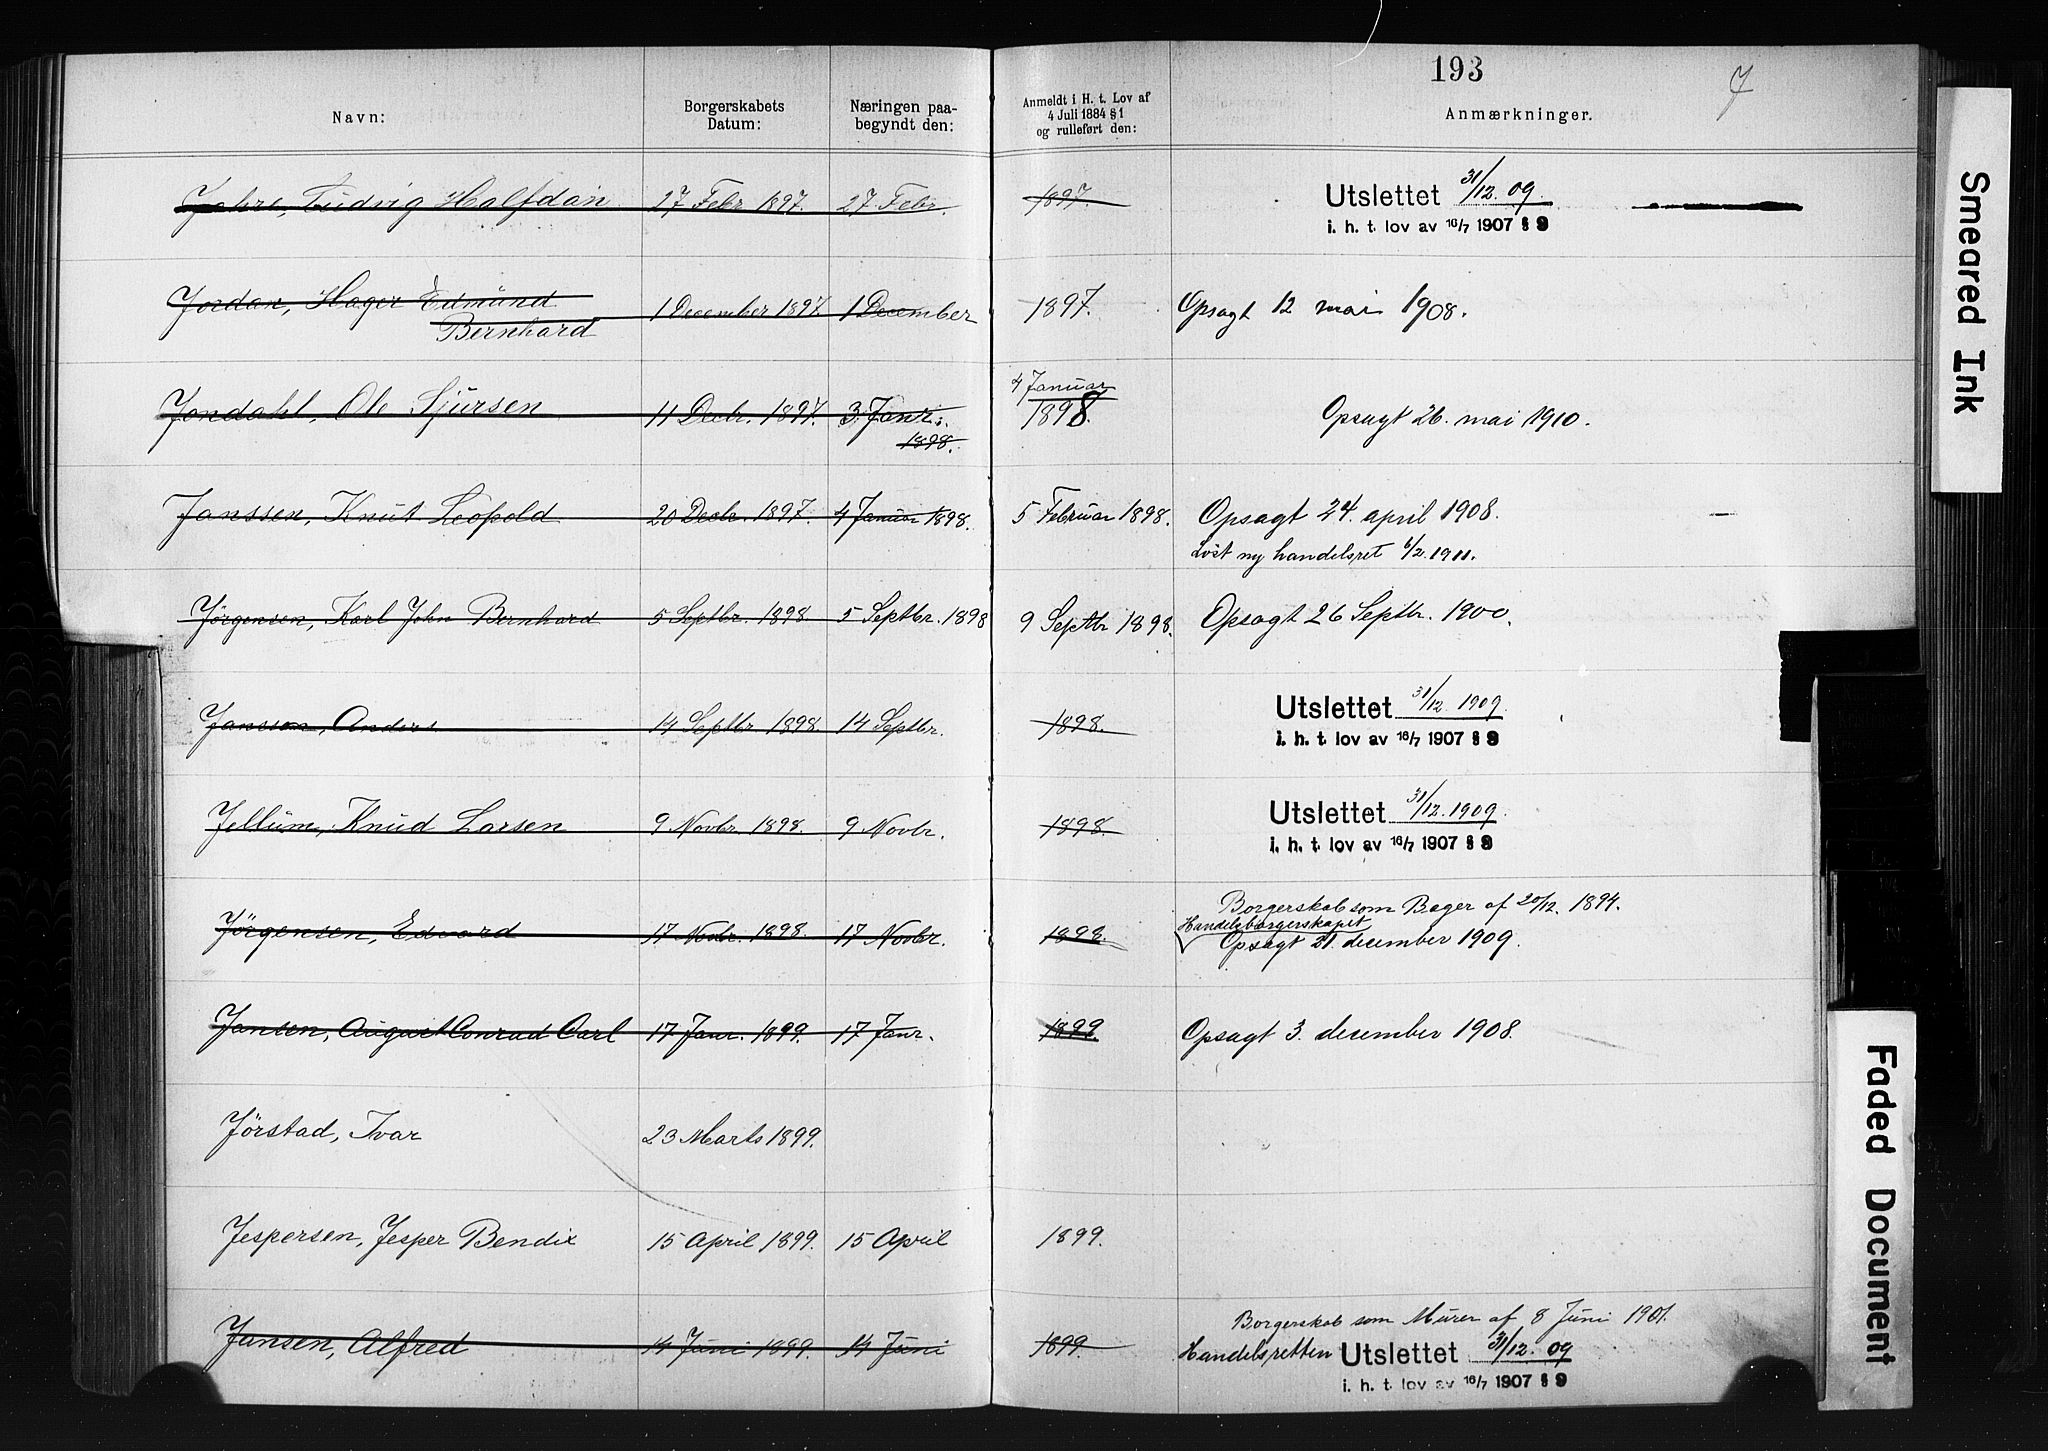 193
J
Navn:
Borgerskabets Datum:
Næringen paa-begyndt den:
Anmeldt i H. t. Lov af 4 Juli 1884 § 1 og rulleført den:
Anmærkninger.
Jahre, Ludvig Halfdan 27 Febr. 1897. 27 Febr. 1897. Utslettet 31/12. 09.
i. h. t. lov av 16/7 1907 § 9
Jordan, Hager Edmund 1 December 1897. 1 December 1897. Opsagt 12 mai 1908.
Bernhard
4 Januar
Jondahl, Ole Sjursen 11 Decbr. 1897. 3 Janr. 1898. Opsagt 26. mai 1910.
1898.
Janssen, Knut Leopold 20 Decbr. 1897. 4 Januar 1898. 5 Februar 1898. Opsagt 24. april 1908.
Löst ny handelsret 6/2. 1911.
Jörgensen, Karl John Bernhard 5 Septbr. 1898 5 Septbr. 1898 9 Septbr 1898. Opsagt 26 Septbr. 1900.
Janssen, Anders 14 Septbr. 1898. 14 Septbr. 1898. Utslettet 31/12. 1909.
i. h. t. lov av 16/7 1907 § 9
Jellum, Knud Larsen 9 Novbr. 1898. 9 Novbr. 1898. Utslettet 31/12. 1909.
i. h. t. lov av 16/7 1907 § 9
Borgerskab som Bager af 20/12. 1894.
Handelsborgerskapet
Jörgensen, Edvard 17 Novbr. 1898. 17 Novbr. 1898. Opsagt 21. december 1909.
Jansen, August Conrad Carl 17 Janr. 1899. 17 Janr. 1899. Opsagt 3. december 1908.
Jörstad, Ivar 23 Marts 1899.
Jespersen, Jesper Bendix 15 April 1899. 15 April 1899.
Borgerskab som Murer af 8 Juni 1901.
Jansen, Alfred 14 Juni 1899. 14 Juni 1899. Handelsretten Utslettet 31/12. 09
i. h. t. lov av 16/7 1907 § 9
Smeared Ink
Faded Document